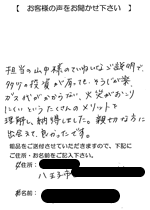 【 お客様の声をお聞かせ下さい 】
担当の山中様のていねいなご説明で、
多少の投資が戻っても、そうじが楽、
ガス代がかからない、火災がおこり
にくいというたくさんのメリットを
理解し、納得しました。親切な方に
出会えて、良かったです。
粗品をご送付させていただきますので、下記に
ご住所・お名前をご記入下さい。
ご住所:
八王子市
お名前: